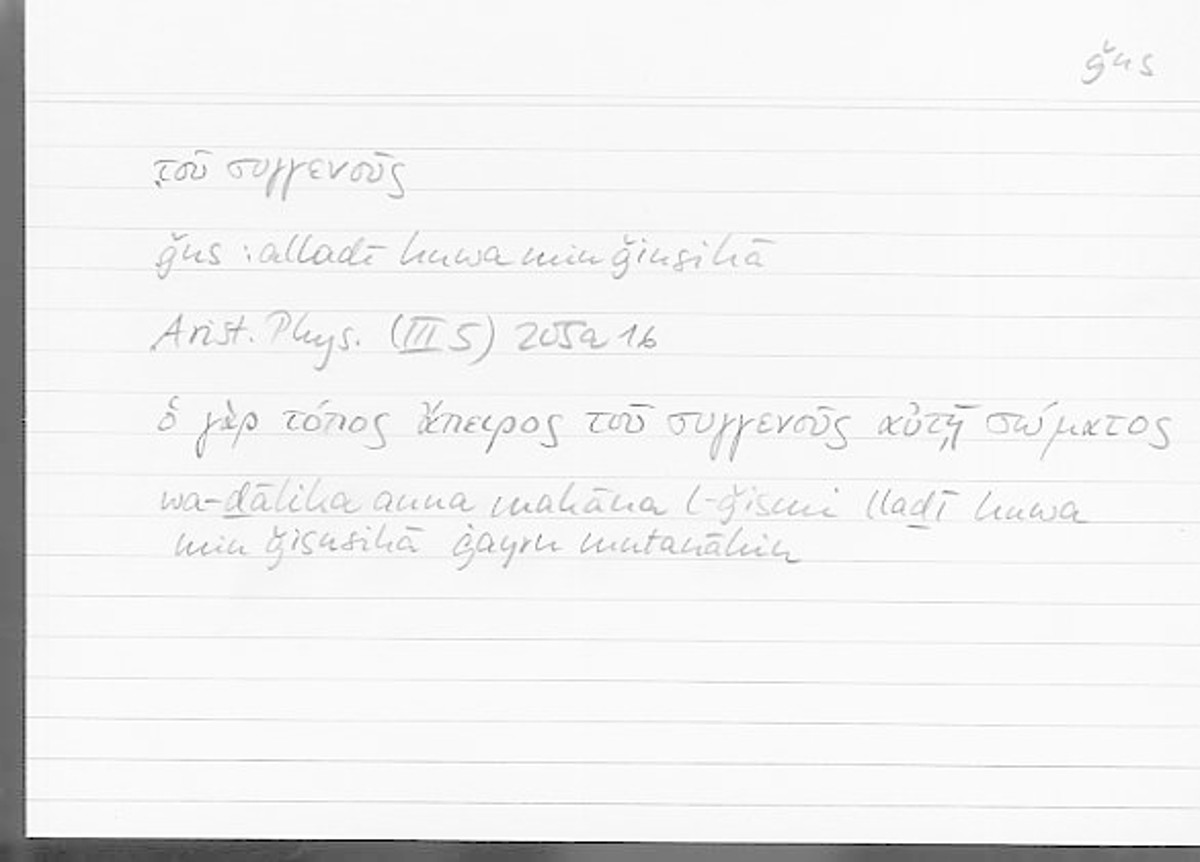 ǧns
τοῦ συγγενοῦς
ǧns : alladī huwa min ǧinsihā
Arist. Phys. (III 5) 205a 16
ὁ γὰρ τόπος ἄπειρος τοῦ συγγενοῦς αὐτῇ σώματος
wa-ḏālika anna makāna l-ǧismi llaḏī huwa
min ǧisnsihā ġayru mutanāhin